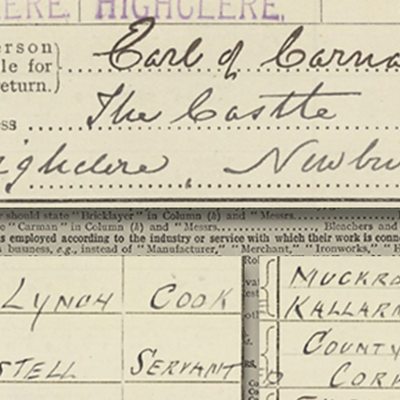 HIGHCLERE.
erson
Earl of Carna
le for
eturn.)
The Castle
ess
ighclere, Newbu
should state "Bricklayer" in Column (b) and "Messrs.
"Carman" in Column (b) and "Messrs. Bleachers and
is employed according to the industry or service with which their work is conne
s business, e.g., instead of "Manufacturer," "Merchant," "Ironworks," "H
LYNCH COOK
STELL SERVANT
MUCKRO
KALLARN
COUNTY
CORK